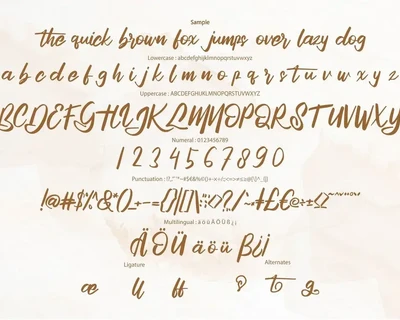 Sample
the quick brown fox jumps over lazy dog
Lowercase : abcdefghijklmnopqrstuvwxyz
a b c d e f g h i j k l m n o p q r s t u v w x y z
Uppercase : ABCDEFGHIJKLMNOPQRSTUVWXYZ
BCDEFGHIJKLMNOPQRSTUVWXY
Numeral : 0123456789
1 2 3 4 5 6 7 8 9 0
Punctuation :
Multilingual : ä ö ü Ä Ö Ü ß ¡ ¿
Ä Ö Ü ä ö ü ß ¿ ¡
Ligature Alternates
æ ff